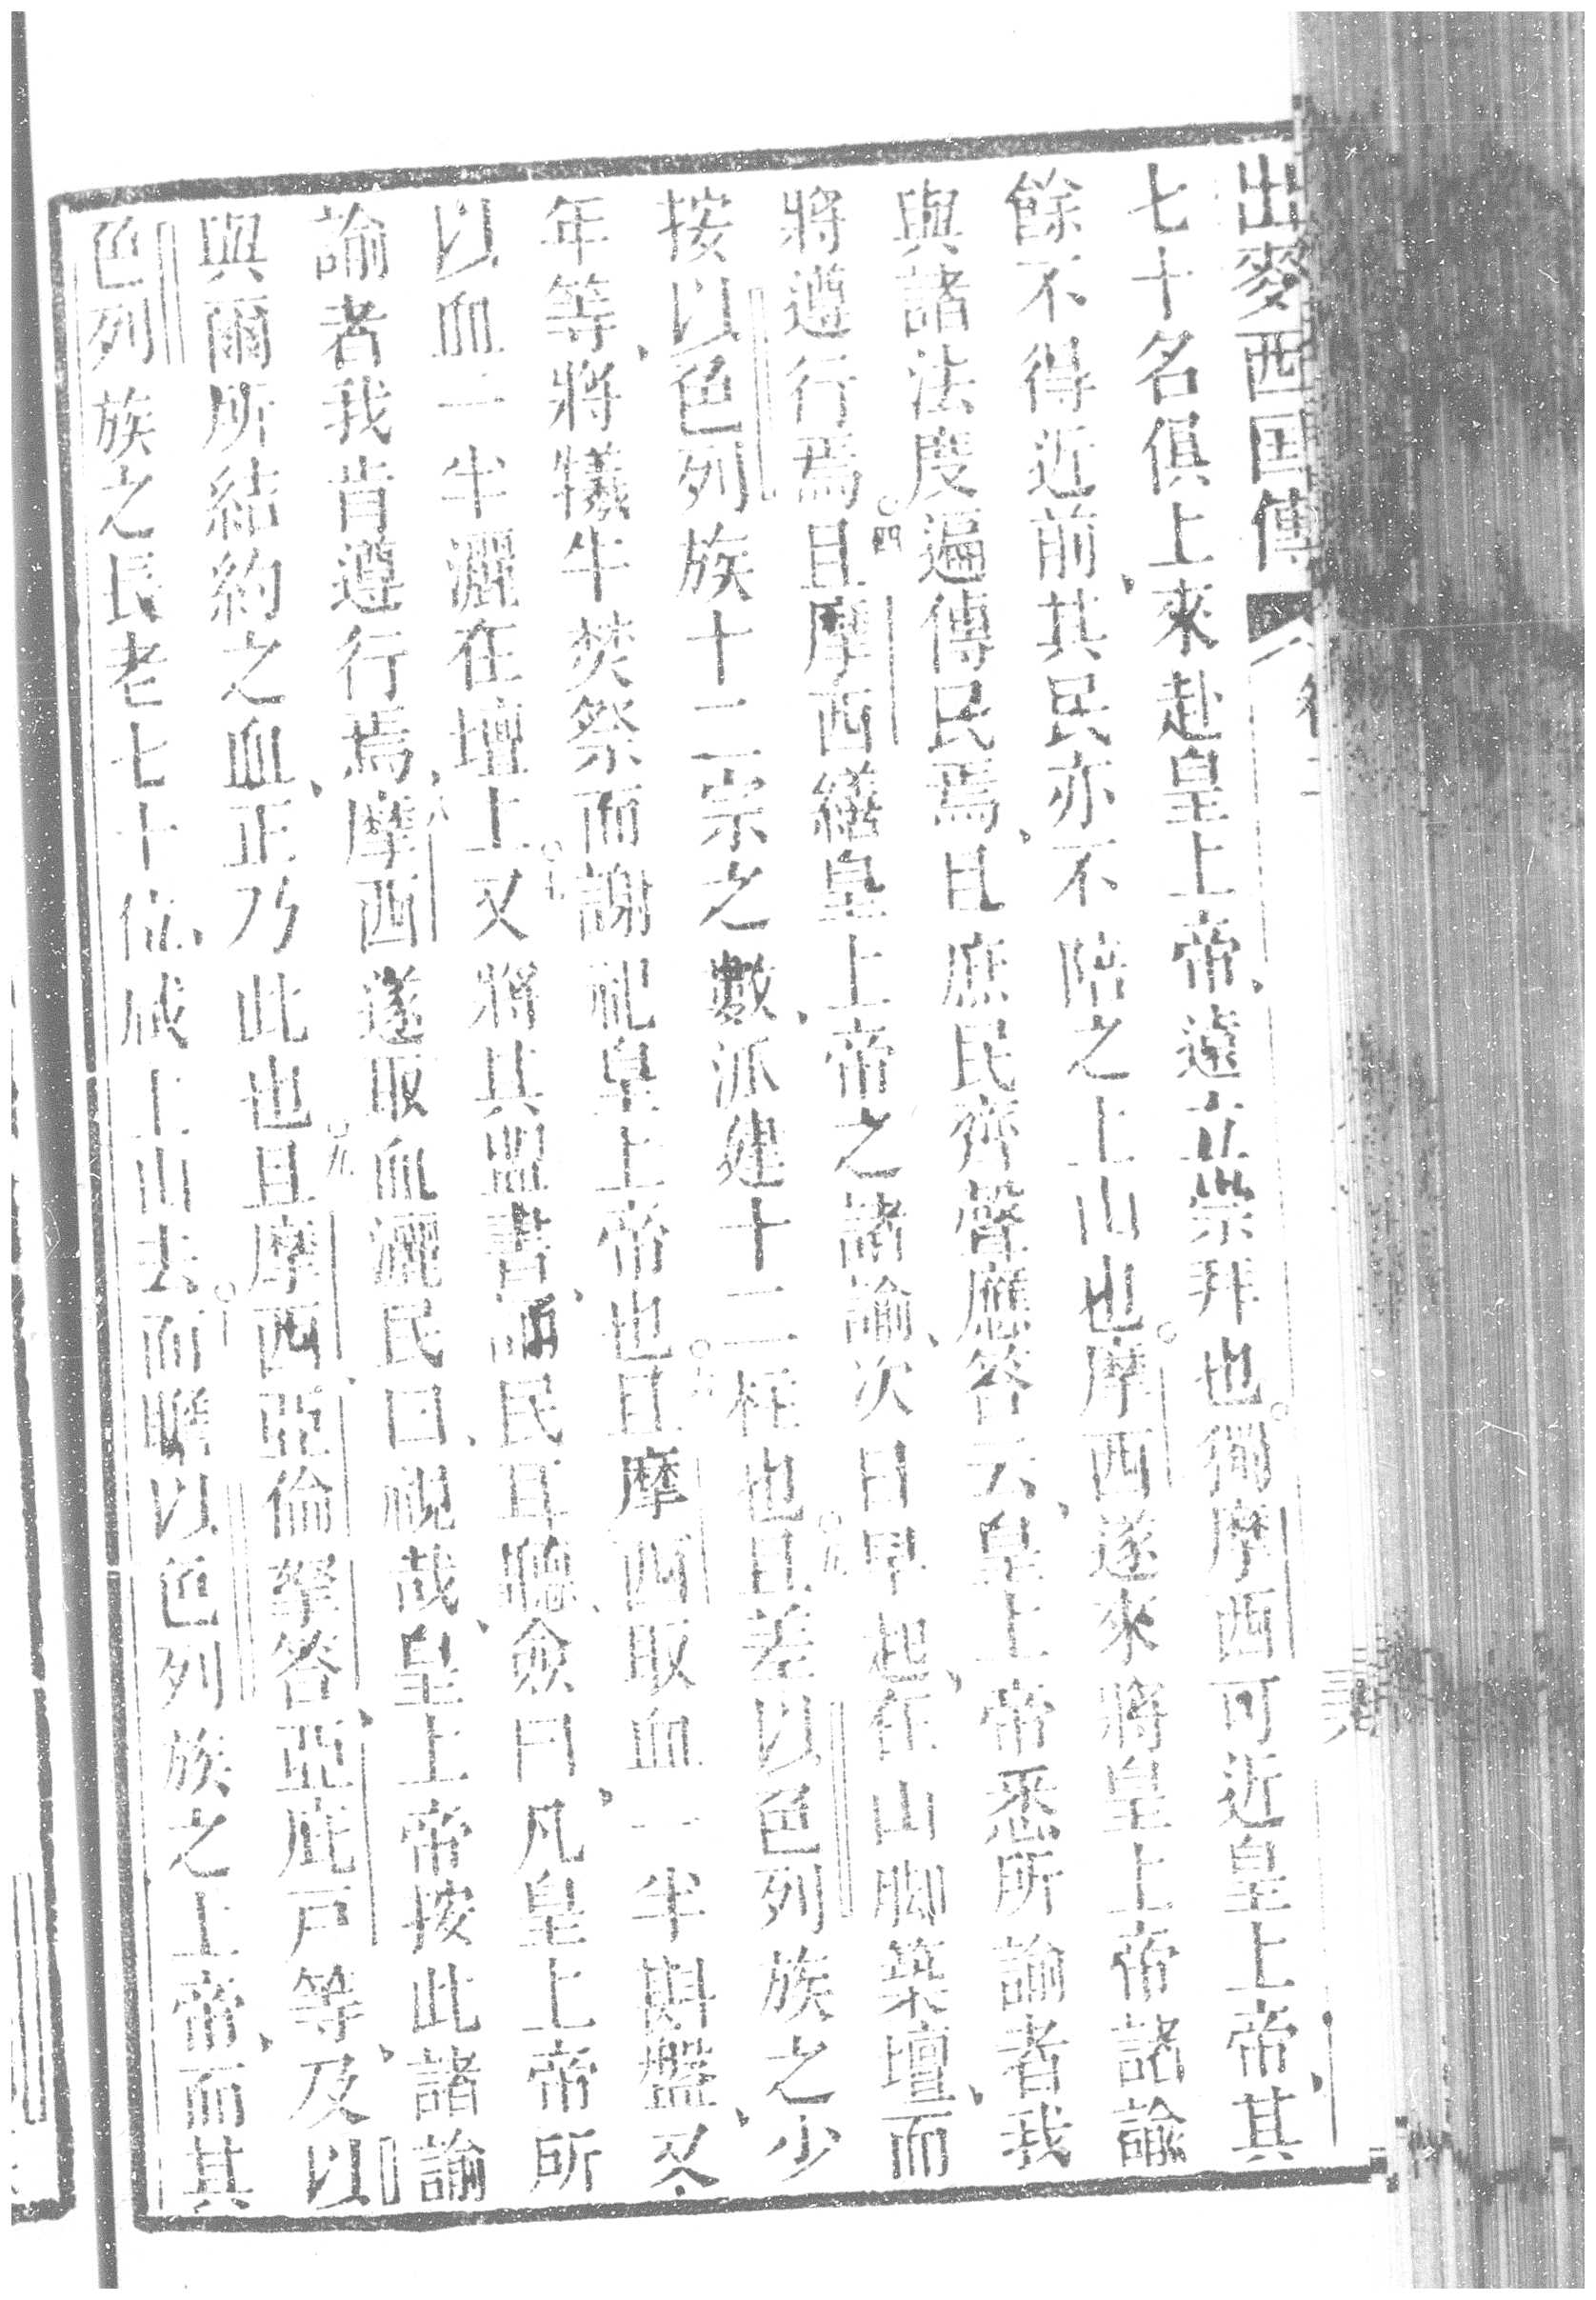 出麥西囯傳
七十名俱上來赴皇上帝遠立崇拜也獨摩西可近皇上帝其
餘不得近前其民亦不陪之上山也摩西遂來將皇上帝諸諭
與諸法度遍傳民焉且庶民齊聲應答云皇上帝悉所諭者我
將遵行焉四且摩西繕皇上帝之諸諭次日早起在山脚築壇而
按以色列族十二宗之數派建十二柱也且差以色列族之少
年等將犧牛焚祭而謝祀皇上帝也且摩西取血一半斟盤又
以血一半灑在壇上又將其盟書諭民且聽僉曰凡皇上帝所
諭者我肯遵行焉摩西遂取血灑民曰視哉皇上帝按此諸諭
與爾所結約之血正乃此也九且摩西亞倫拏答亞庇戶等及以
色列族之長老七十位咸上山去十而睹以色列族之上帝而其